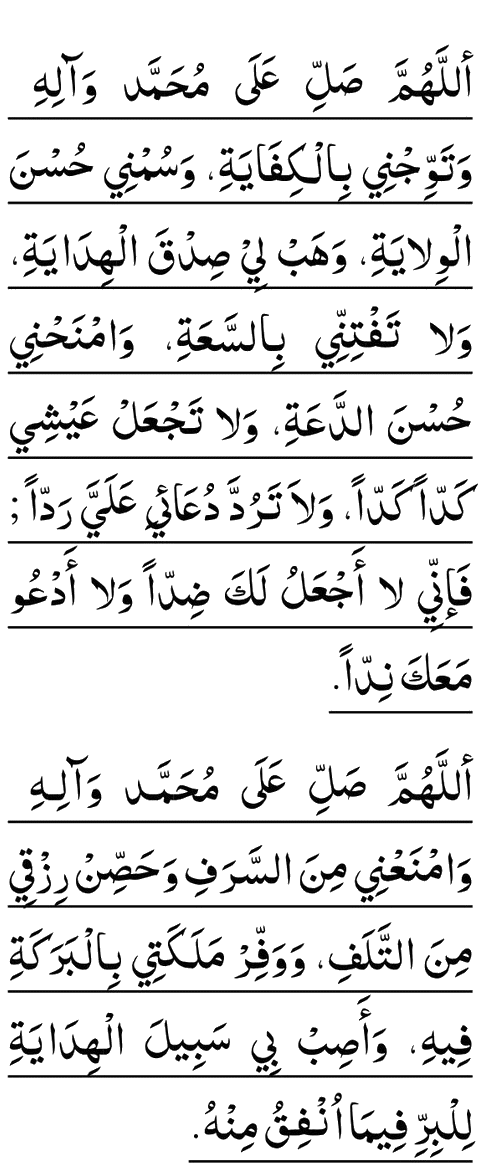 أللَّهُمَّ صَلِّ عَلَى مُحَمَّد وَآلِهِ
وَتَوِّجْنِي بِالْكِفَايَةِ، وَسُمْنِي حُسْنَ
الْوِلايَةِ، وَهَبْ لِيْ صِدْقَ الْهِدَايَةِ،
وَلا تَفْتِنِّي بِالسَّعَةِ، وَامْنَحْنِي
حُسْنَ الدَّعَةِ، وَلا تَجْعَلْ عَيْشِي
كَدّاً كَدّاً، وَلاَ تَرُدَّ دُعَائِي عَلَيَّ رَدّاً ;
فَإنِّي لا أَجْعَلُ لَكَ ضِدّاً وَلا أَدْعُو
مَعَكَ نِدّاً.
أللَّهُمَّ صَلِّ عَلَى مُحَمَّد وَآلِهِ
وَامْنَعْنِي مِنَ السَّرَفِ وَحَصِّنْ رِزْقِي
مِنَ التَّلَفِ، وَوَفِّرْ مَلَكَتِي بِالْبَرَكَةِ
فِيهِ، وَأَصِبْ بِي سَبِيلَ الْهِدَايَةِ
لِلْبِرِّ فِيمَا اُنْفِقُ مِنْهُ.